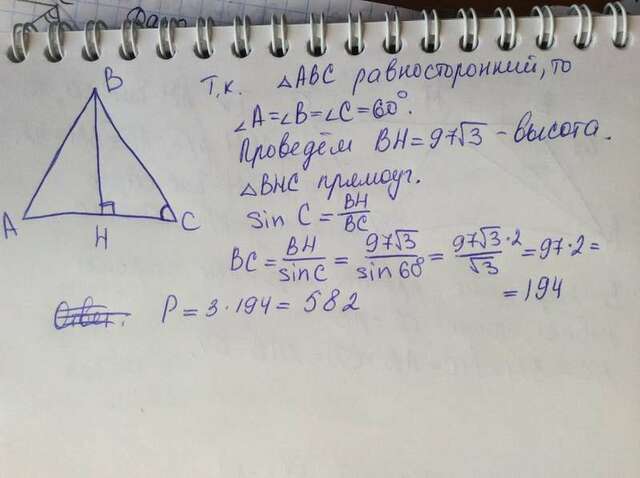 В
Т.к. △ABC равносторонний, то
∠A=∠B=∠C=60°.
Проведём BH=97√3 - высота.
△BHC прямоуг.
sin C = BH/BC
А H C
BC = BH/sinC = 97√3/sin60 = 97√3·2/√3 = 97·2=
=194
Ответ. P = 3·194 = 582